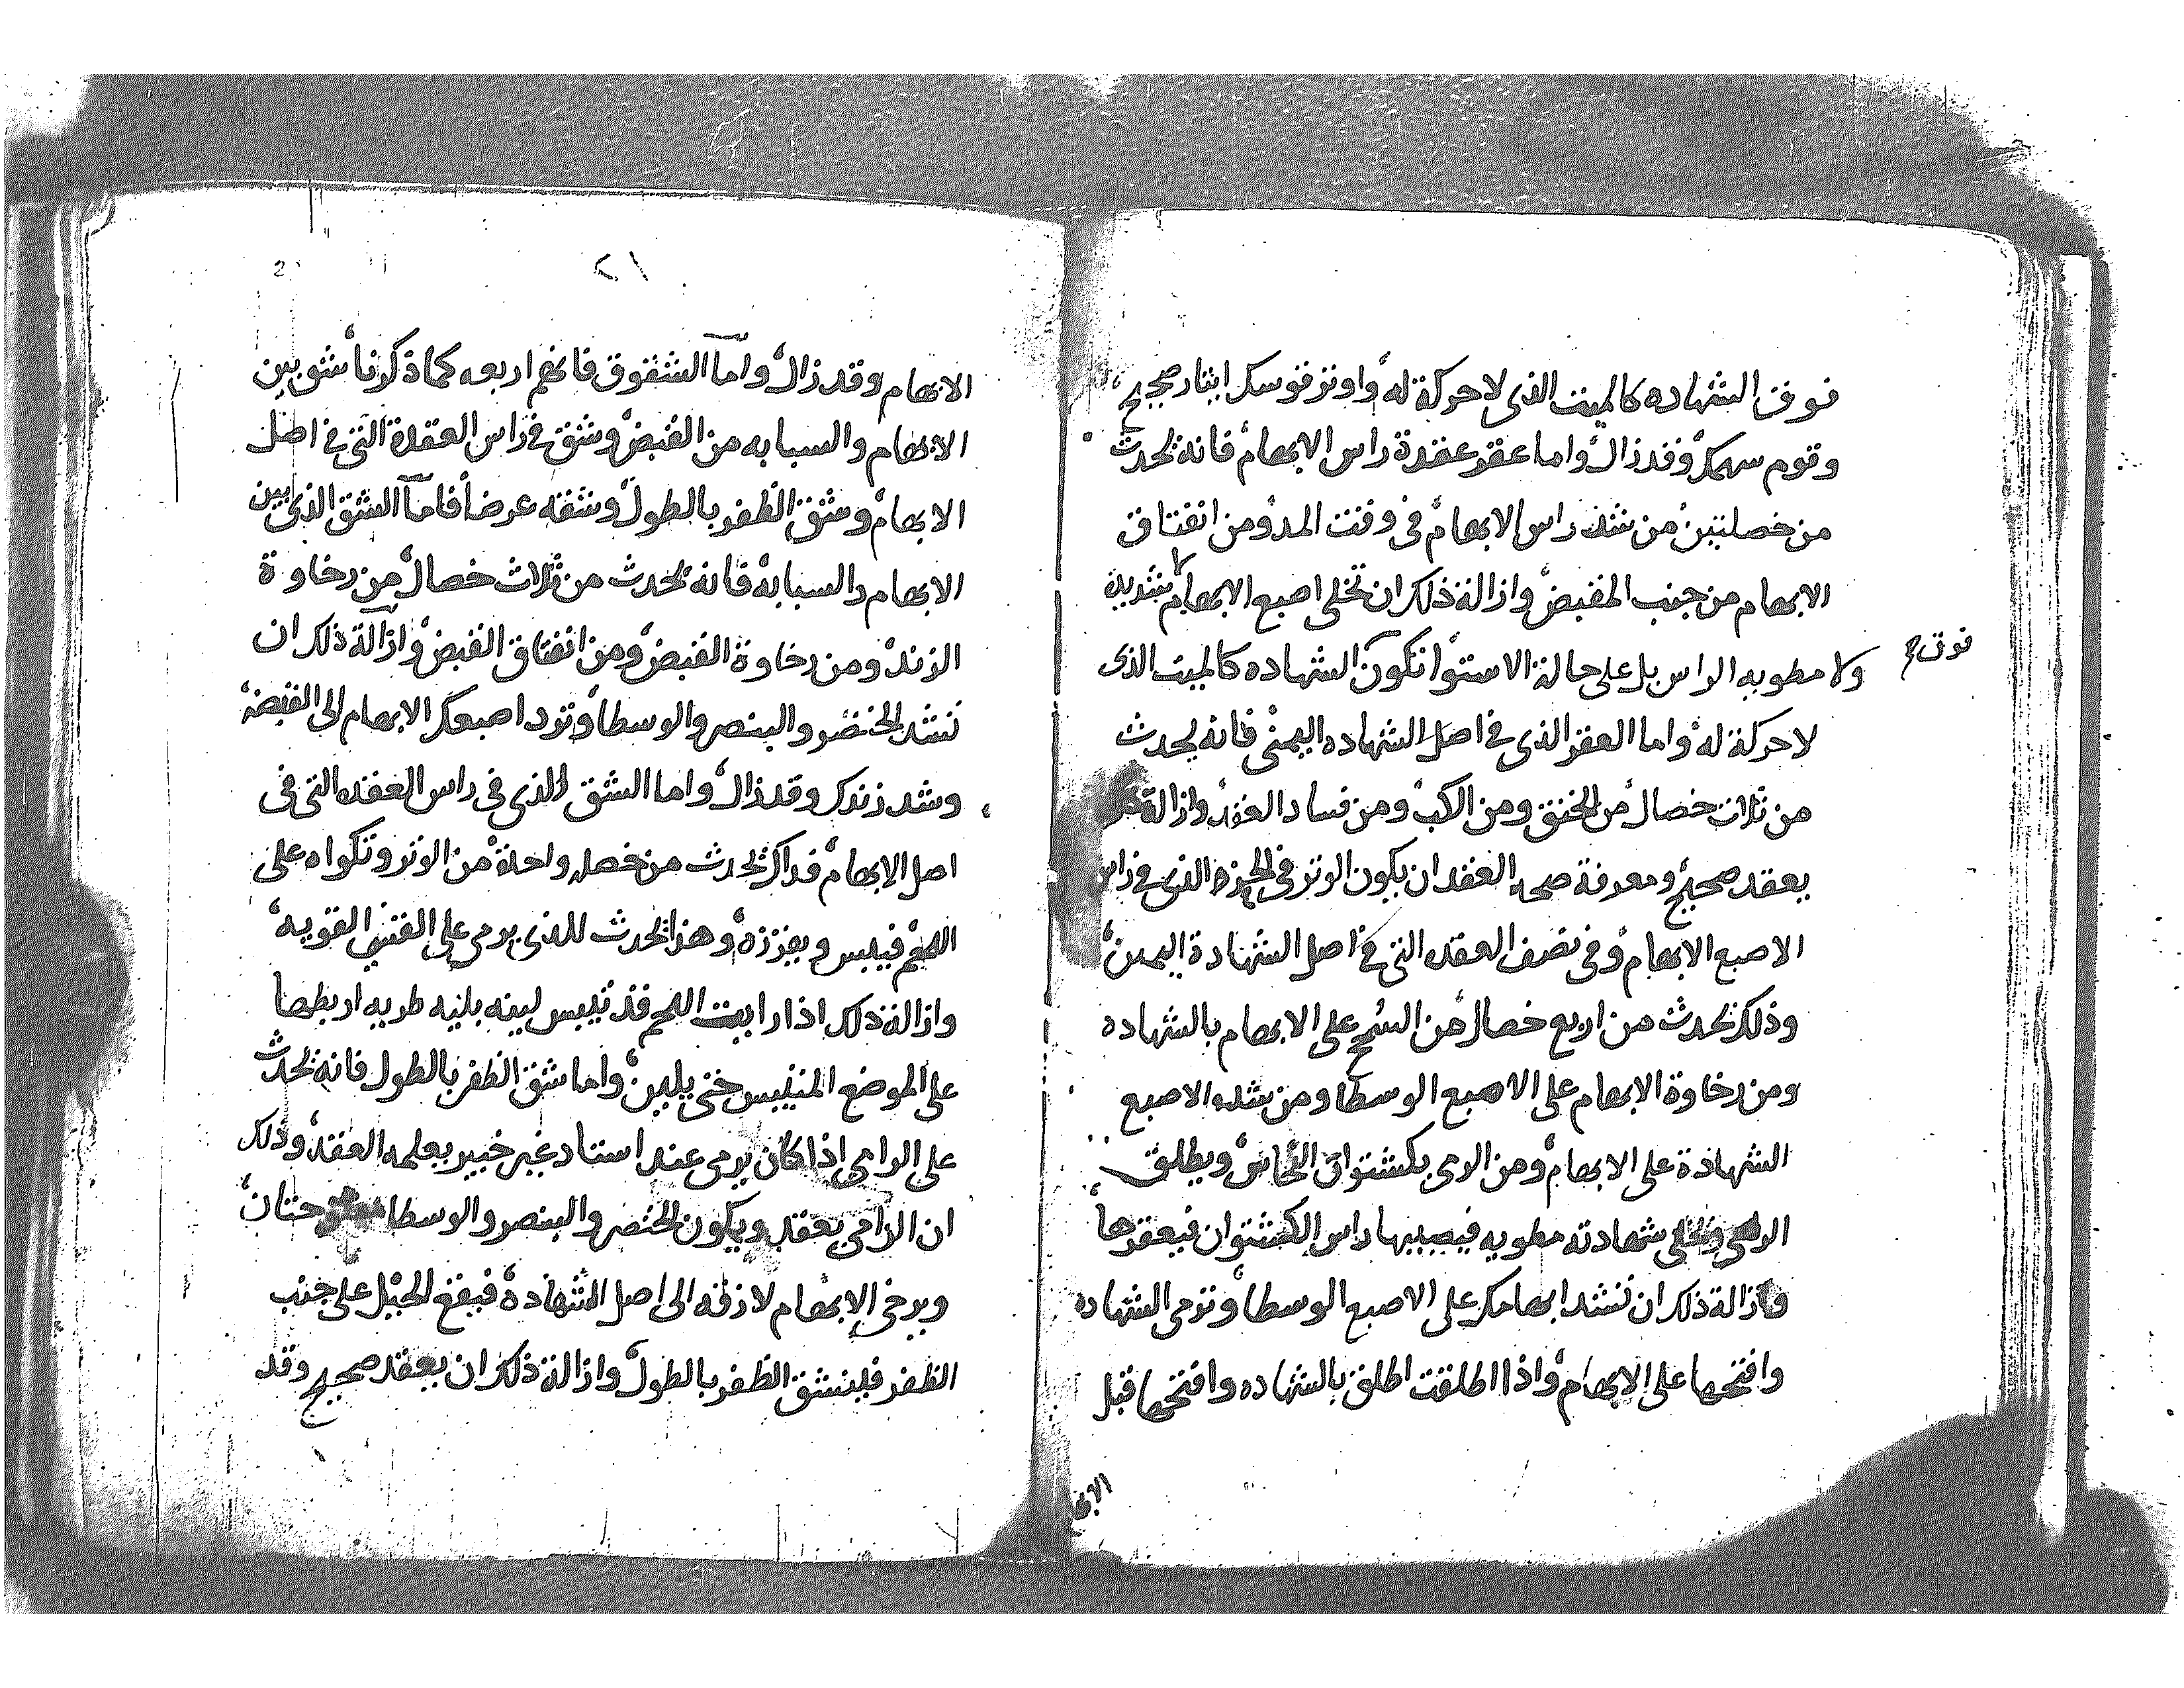 فوق الشهاده كالميت الذى لا حركة له واوتر قوسك ايتار صحيح
وقوم سهمك وقد زال واما عقر عقدة راس الابهام فانه يحدث
من خصلتين من شد راس الابهام فى وقت المد ومن اتفتاق
الابهام من جنب المقبض وازالة ذلك ان تخلى اصبع الابهام لا شديده
ولا مطويه الراس بل على حالة الاستوا تكون الشهاده كالميت الذى
فوق
لا حركة له واما العقر الذى فى اصل الشهاده اليمنى فانه يحدث
من ثلاث خصال من الخنق ومن الكب ومن فساد العقد وازالة
يعقد صحيح ومعرفة صحة العقد ان يكون الوتر فى الحز الذى فى راس
الاصبع الابهام وفى نصف العقده التى فى اصل الشهادة اليمين
وذلك يحدث من اربع خصال من الشح على الابهام بالشهاده
ومن رخاوة الابهام على الاصبع الوسطا ومن شده الاصبع
الشهادة على الابهام ومن الرمى بكشتوان النحاس ويطلق
الرامى ويخلى شهادته مطويه فيصيبها راس الكشتوان فيعقرها
فازالة ذلك ان تشد ابهامك على الاصبع الوسطا وترمى الشهاده
وافتحها على الابهام واذا اطلقت اطلق بالشهاده وافتحها قبل
الابهام
٢١
الابهام وقد زال واما الشقوق فانهم اربعه كما ذكرنا شق بين
الابهام والسبابه من القبض وشق فى راس العقدة التى فى اصل
الابهام وشق الظفر بالطول وشقه عرضا فاما الشق الذى بين
الابهام والسبابة فانه يحدث من ثلاث خصال من رخاوة
الزند ومن رخاوة القبض ومن اتفتاق القبض وازالة ذلك ان
تشد الخنصر والبنصر والوسطا وترد اصبعك الابهام الى القبضة
وشد زندك وقد زال واما الشق الذى فى راس العقده التى فى
اصل الابهام فداك يحدث من خصله واحدة من الوتر وتكواه على
اللحم فييبس ويعززه وهذا يحدث للذى يرمى على القسى القويه
وازالة ذلك اذا رايت اللحم قد تيبس لينه بليه طريه اربطها
على الموضع المتيبس حتى يلين واما شق الظفر بالطول فانه يحدث
على الرامى اذا كان يرمى عند استاد غير خبير يعلمه العقد وذلك
ان الرامى يعقد ويكون الخنصر والبنصر والوسطا حتان
ويرخى الابهام لازقه الى اصل الشهادة فيقع الحيل على جنب
الظفر فلينشق الظفر بالطول وازالة ذلك ان يعقد صحيح وقد